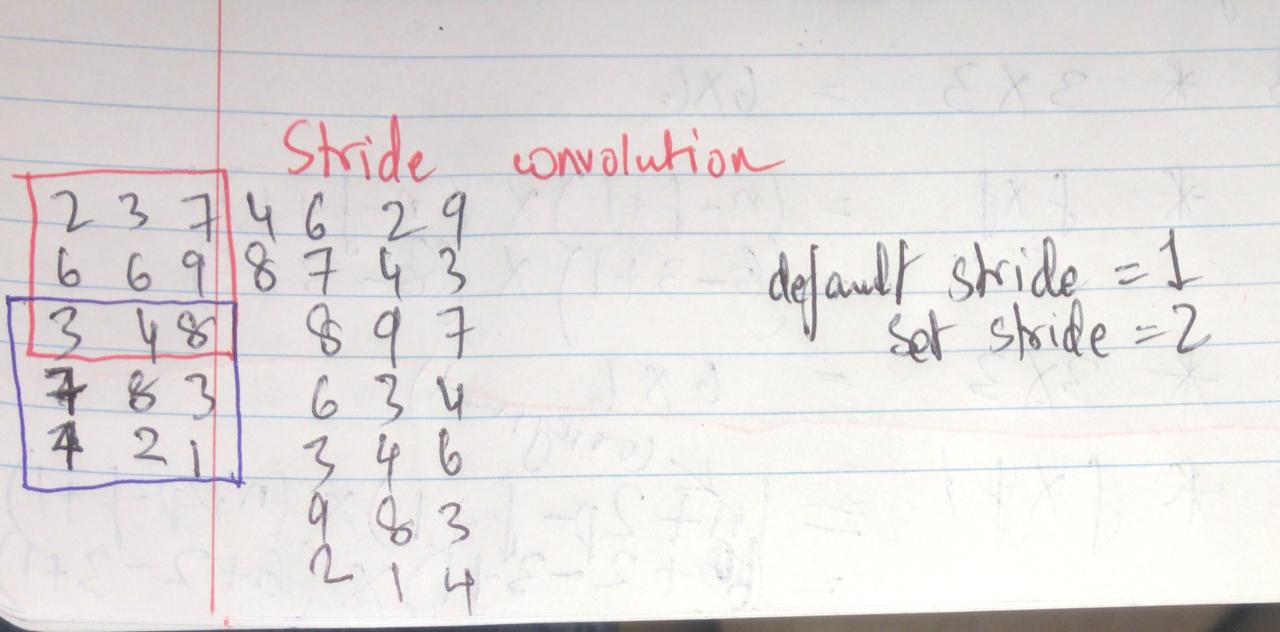 Stride convolution
2 3 7 4 6 2 9
6 6 9 8 7 4 3
3 4 8 8 9 7
7 8 3 6 3 4
2 1 3 4 6
9 8 3
2 1 4
default stride = 1
set stride = 2